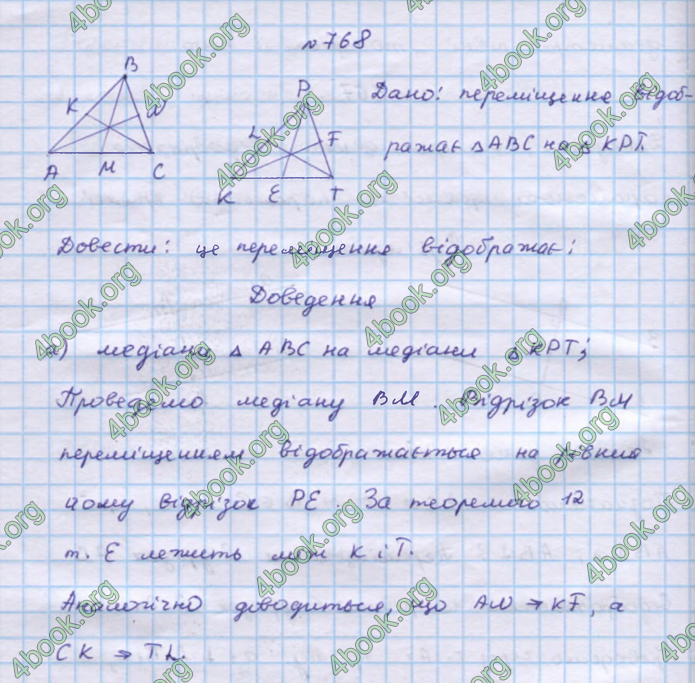 №768
Дано: переміщення відоб-
ражає △ABC на △ KPT.
B
K
N
A
M
C
P
L
F
K
E
T
Довести: це переміщення відображає:
Доведення
а) медіани △ ABC на медіани △ KPT;
Проведемо медіану BM. Відрізок BM
переміщенням відображається на рівний
йому відрізок PE За теоремою 12
т. E лежить між K і T.
Аналогічно доводиться, що AN → KF, а
CK → TL.
4book.org